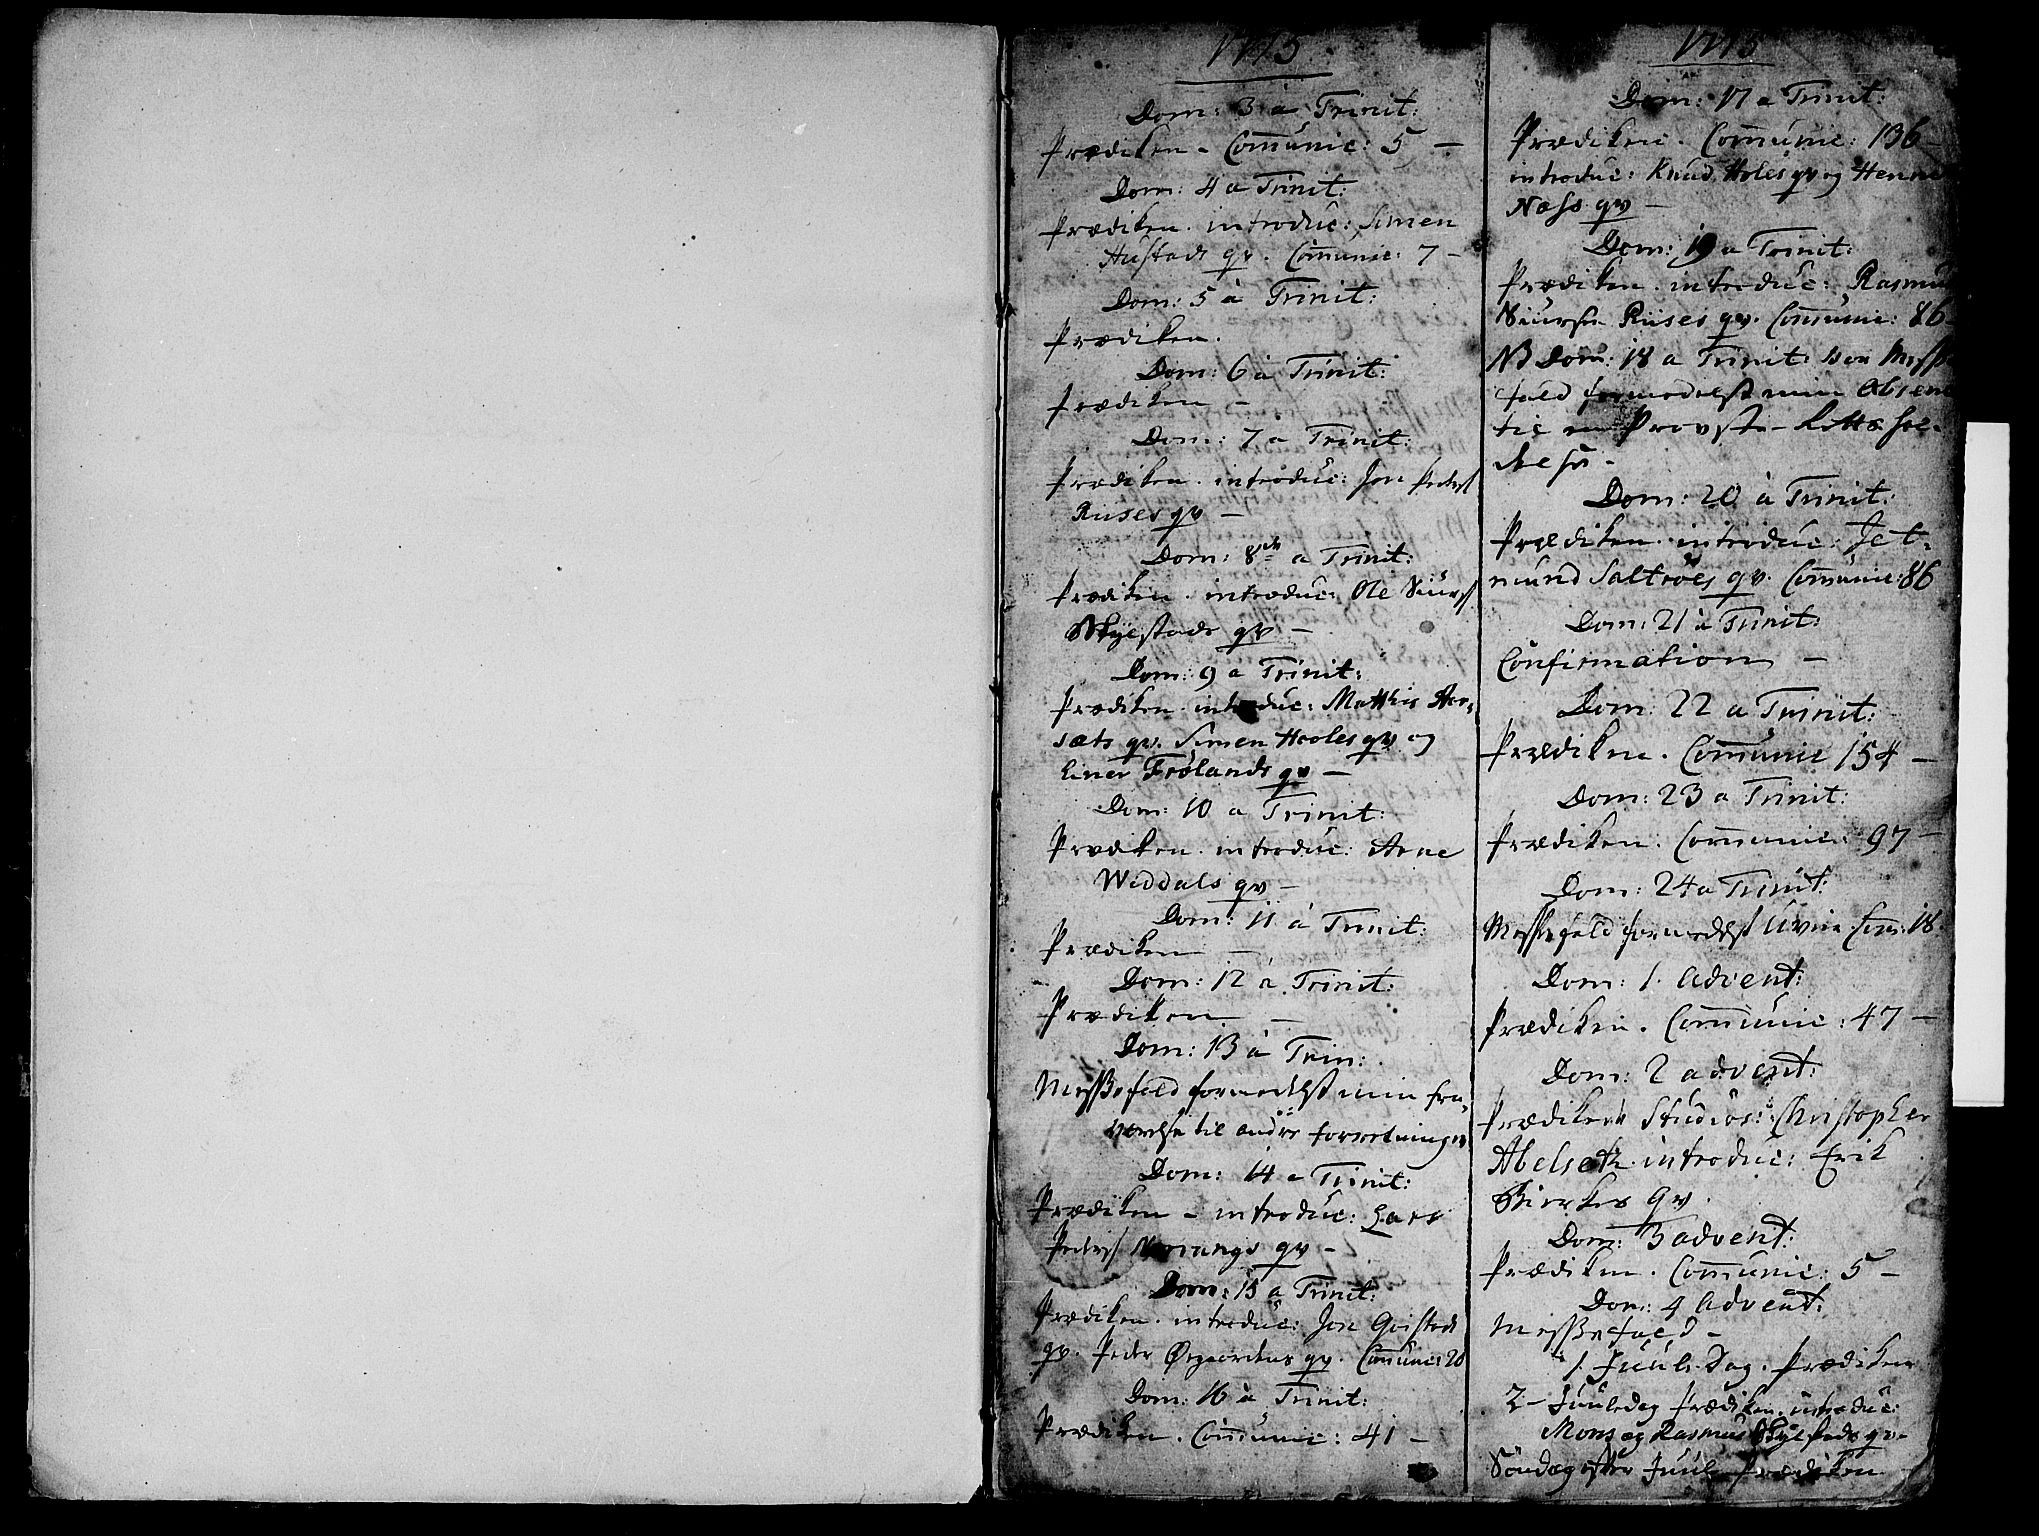 1775
Dom: 3 a Trinit:
Prædiken - Comunic: 5 -
Dom: 4 a Trinit:
Prædiken. introduc: Simen
Hustads qv. Comunic: 7 -
Dom: 5 à Trinit:
Prædiken.
Dom: 6 à Trinit:
Prædiken -
Dom: 7 à Trinit:
Prædiken. introduc: Jon Peders
Riises qv -
Dom: 8de a Trinit:
Prædiken. introduc: Ole Siurs
Skylstads qv -
Dom: 9 a Trinit:
Prædiken. introduc: Matthis Aar-
sæts qv. Simen Hooles qv og
Einer Frølands qv -
Dom: 10 a Trinit:
Prædiken. introduc: Arne
Widdals qv -
Dom: 11 à Trinit:
Prædiken -
Dom: 12 à Trinit:
Prædiken -
Dom: 13 à Trin:
Messefald formedelst min fra-
værelse til andre forretninger
Dom: 14 a Trinit:
Prædiken - introduc: Lars
Peders Norrangs qv -
Dom: 15 a Trinit:
Prædiken. introduc: Jon
qv. Peder Øvgaardens qv. Comunic: 20
Dom: 16 à Trinit:
Prædiken. Comunic: 41 -
1775
Dom: 17 a Trinit:
Prædiken. Comunic: 136 -
introduc: Knud Holes qv og
Næss qv -
Dom: 19 a Trinit:
Prædiken. introduc: Rasmus
Siurs Riises qv. Comunic: 86 -
NB Dom: 18 a Trinit: var Messe
fald formedelst min Absen
tie
Dom: 20 à Trinit:
Prædiken. introduc: Jet-
mund Saltrøes qv. Comunic: 86
Dom: 21 à Trinit:
Confirmation -
Dom: 22 a Trinit:
Prædiken. Comunic 154 -
Dom: 23 a Trinit:
Prædiken. Comunic: 97 -
Dom: 24 a Trinit:
Messefald formedelst Uveir. Com: 18
Dom: 1. Advent:
Prædiken. Comunic: 47 -
Dom: 2 advent:
Prædiken Studios: Christopher
Abelseth. introduc: Erik
Bierkes qv.
Dom: 3 advent:
Prædiken. Comunic: 5 -
Dom: 4 Advent:
Messefald -
1 Juule Dag. Prædiken
2 - Juuledag Prædiken. introduc:
Mons og Rasmus Skylstads qv -
Søndag efter Juul Prædiken